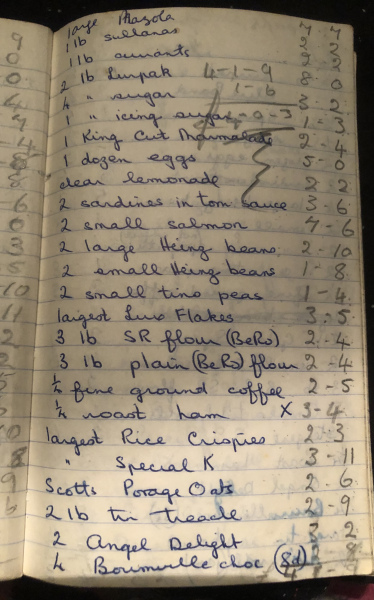 large Mazola 7-7
1 lb sultanas 2 2
1 lb currants 2 2
2 lb Lurpak 4-1-9 8-0
4 " sugar 1-6 3-2
1 " icing sugar 4-0-3 1-3
1 King Cut Marmalade 2-4
1 dozen eggs 5-0
clear lemonade 2 2
2 sardines in tom sauce 3-6
2 small salmon 7-6
2 large Heinz beans 2-10
2 small Heinz beans 1-8
2 small tins peas 1-4
largest Lux Flakes 3-5
3 lb SR flour (BeRo) 2-4
3 lb plain (BeRo) flour 2-4
¼ fine ground coffee 2-5
¼ roast ham X 3-4
largest Rice Crispies 2 3
" Special K 3-11
Scotts Porage Oats 2-6
2 lb tin treacle 2-9
2 Angel Delight 3 2
4 Bournville choc (8d) 2-8